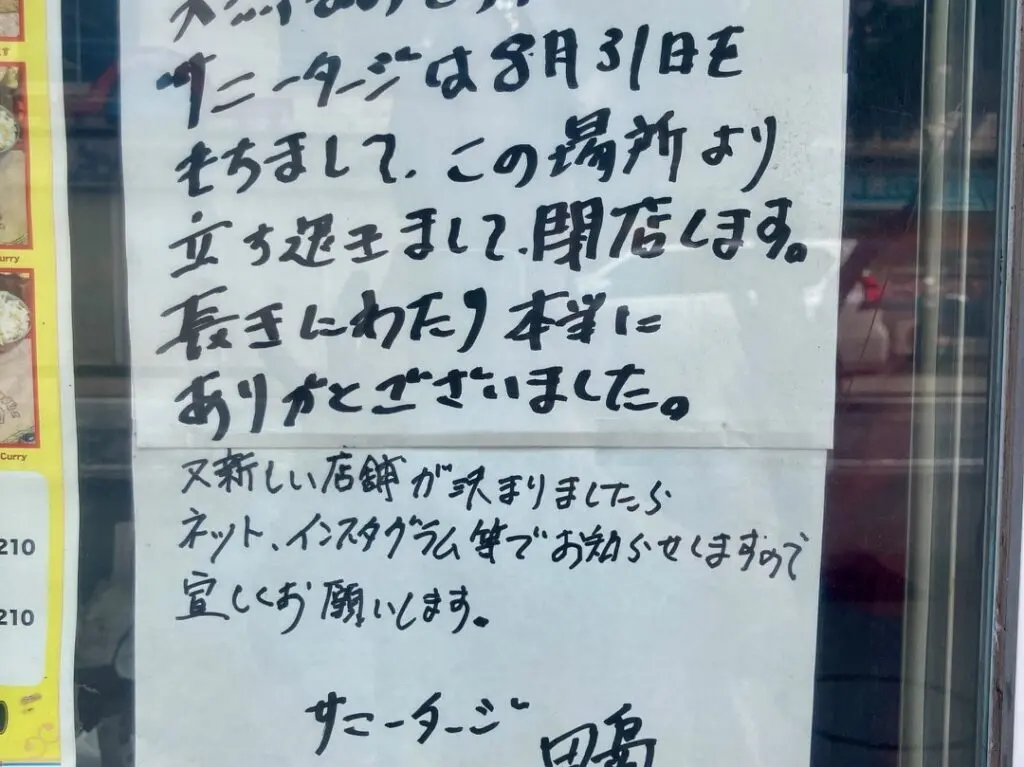 サニータージは8月31日を
もちまして、この場所より
立ち退きまして、閉店します。
長きにわたり本当に
ありがとございました。
又新しい店舗が決まりましたら
ネット、インスタグラム等でお知らせしますので
宜しくお願いします。
サニータージ 田島
urry
Curry
210
210